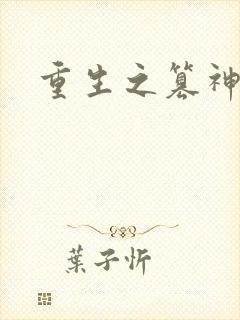 重生之篡神
葉子忻